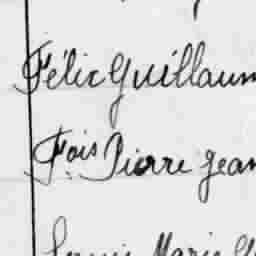 Félix Guillaum
Fois Pierre Jean
Louis Marie